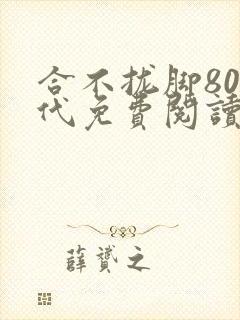 合不拢脚80
代免费閱讀
薛赟之